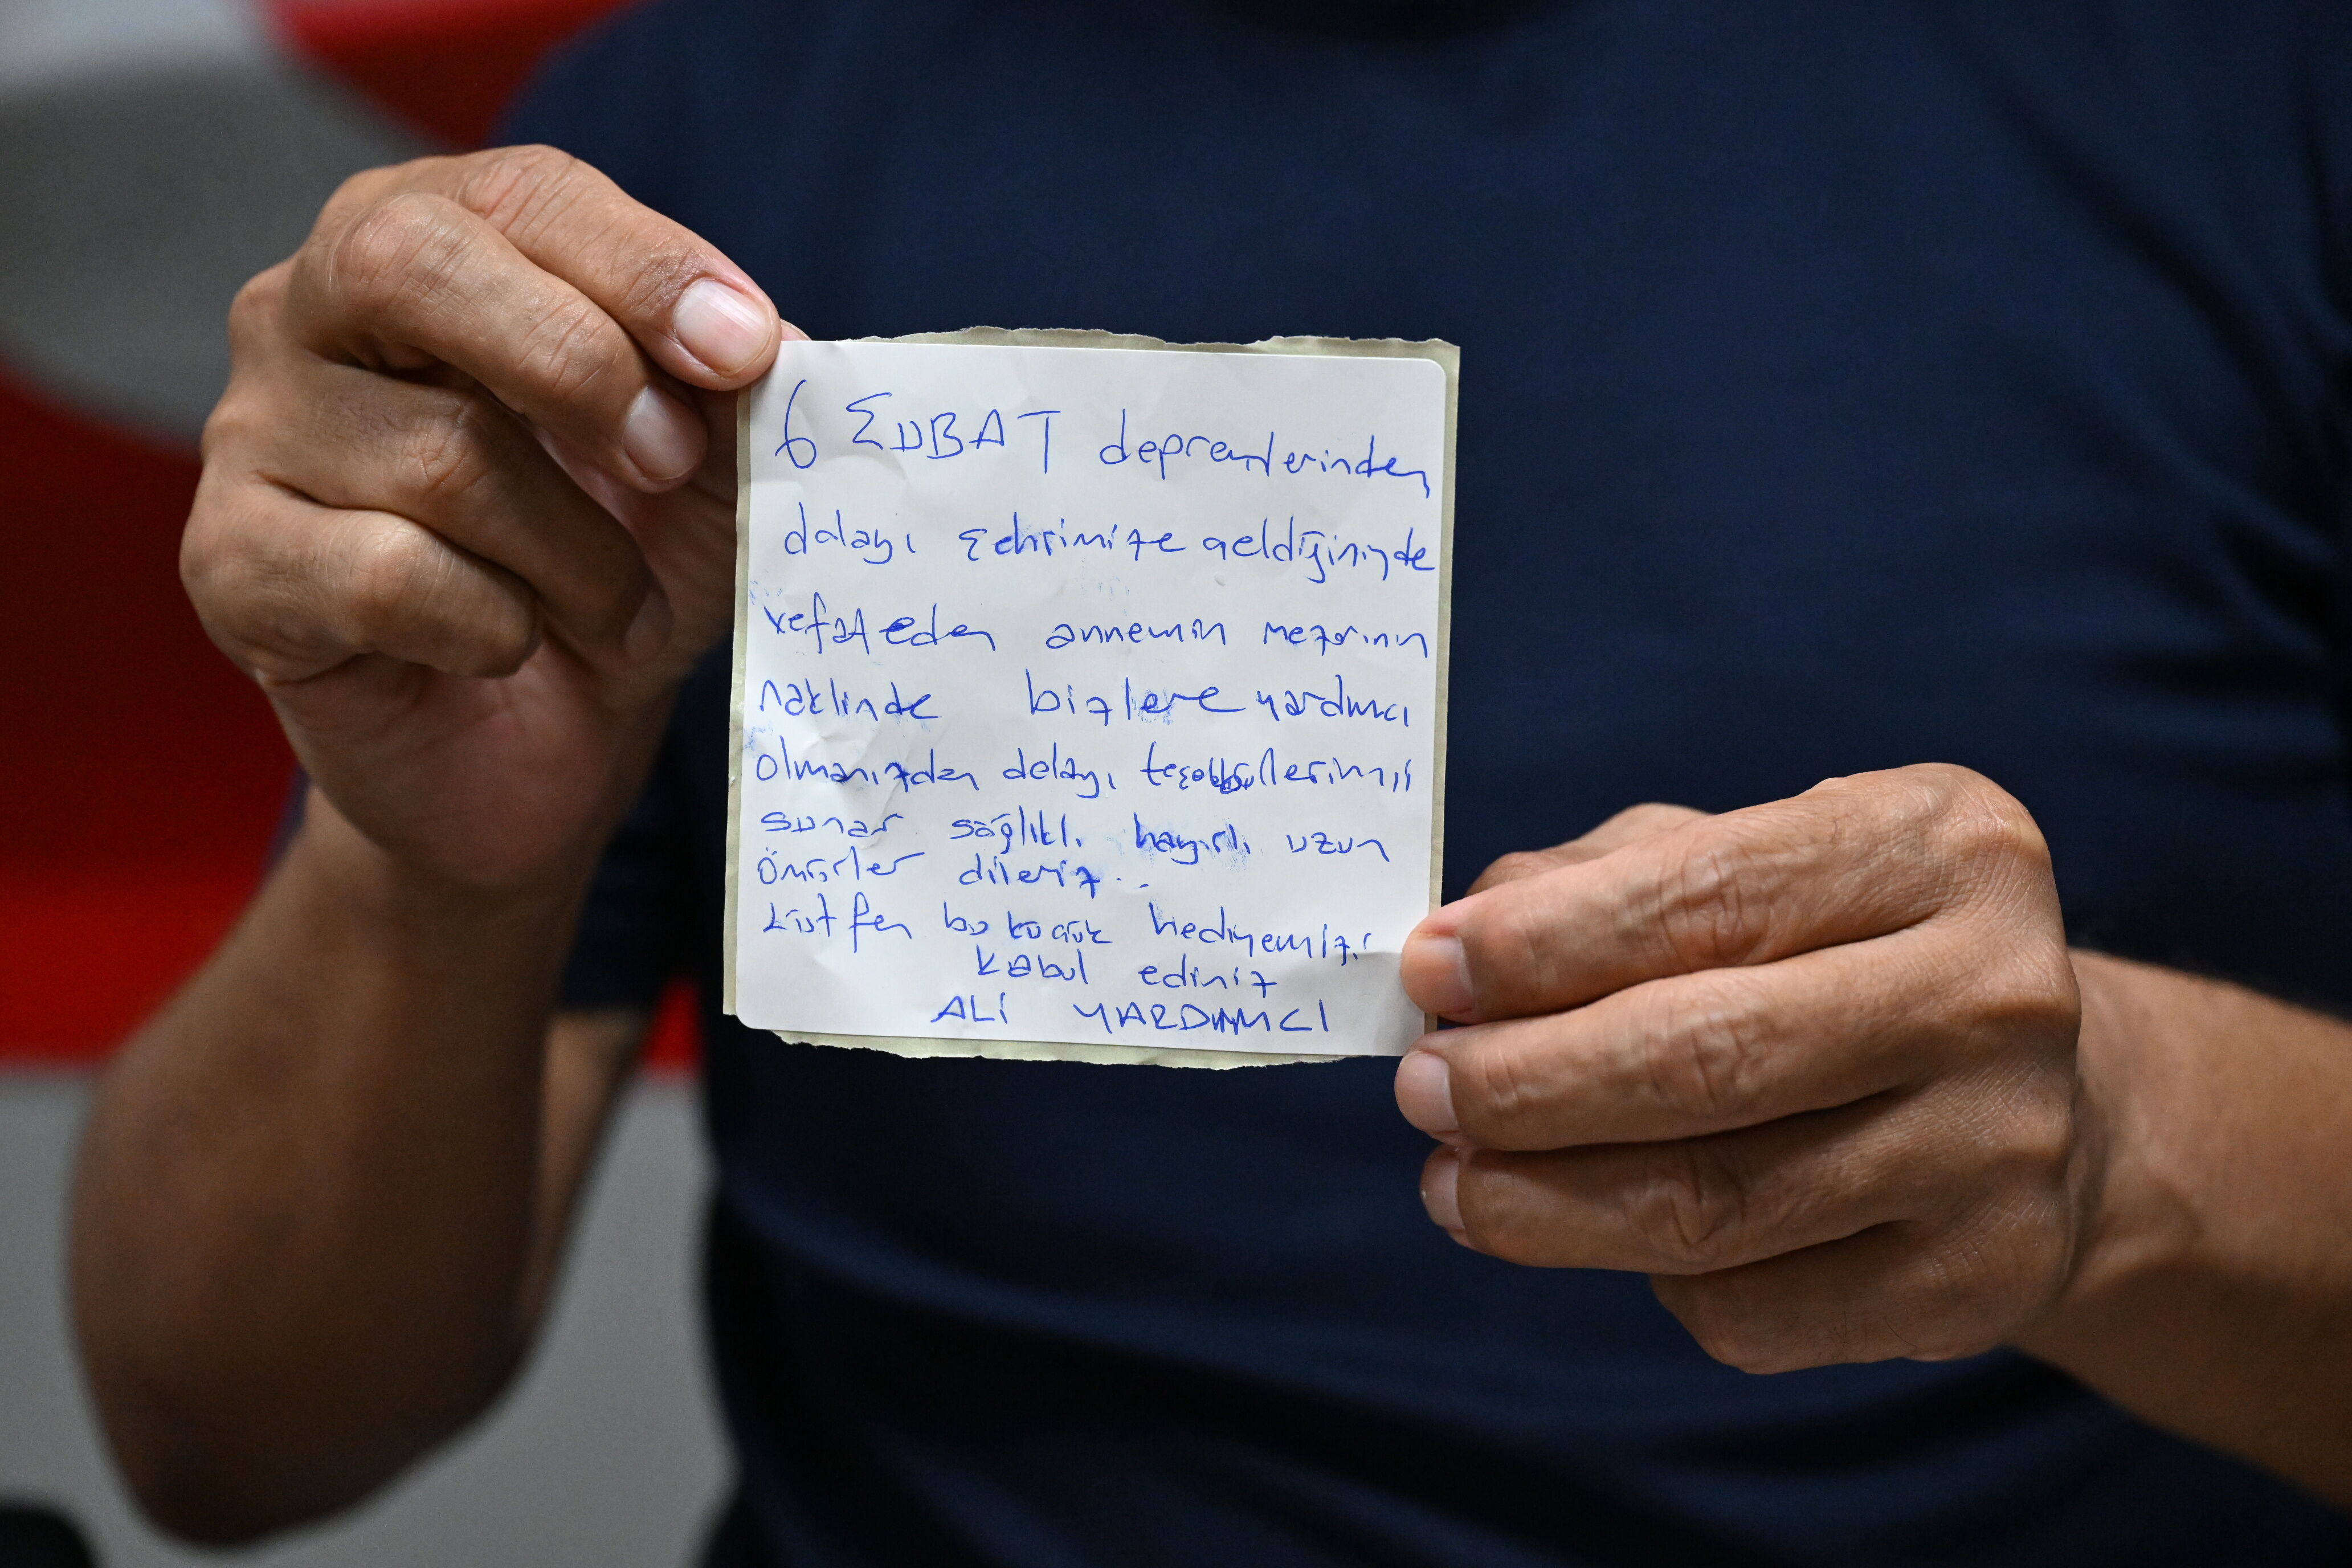 6 ŞUBAT depremlerinden
dolayı şehrimize geldiğinizde
vefat eden annemin mezarının
naklinde bizlere yardımcı
olmanızdan dolayı teşekkürlerimi
sunar sağlıklı hayırlı uzun
ömürler dileriz..
Lütfen bu küçük hediyemizi
kabul ediniz
ALİ YARDIMCI